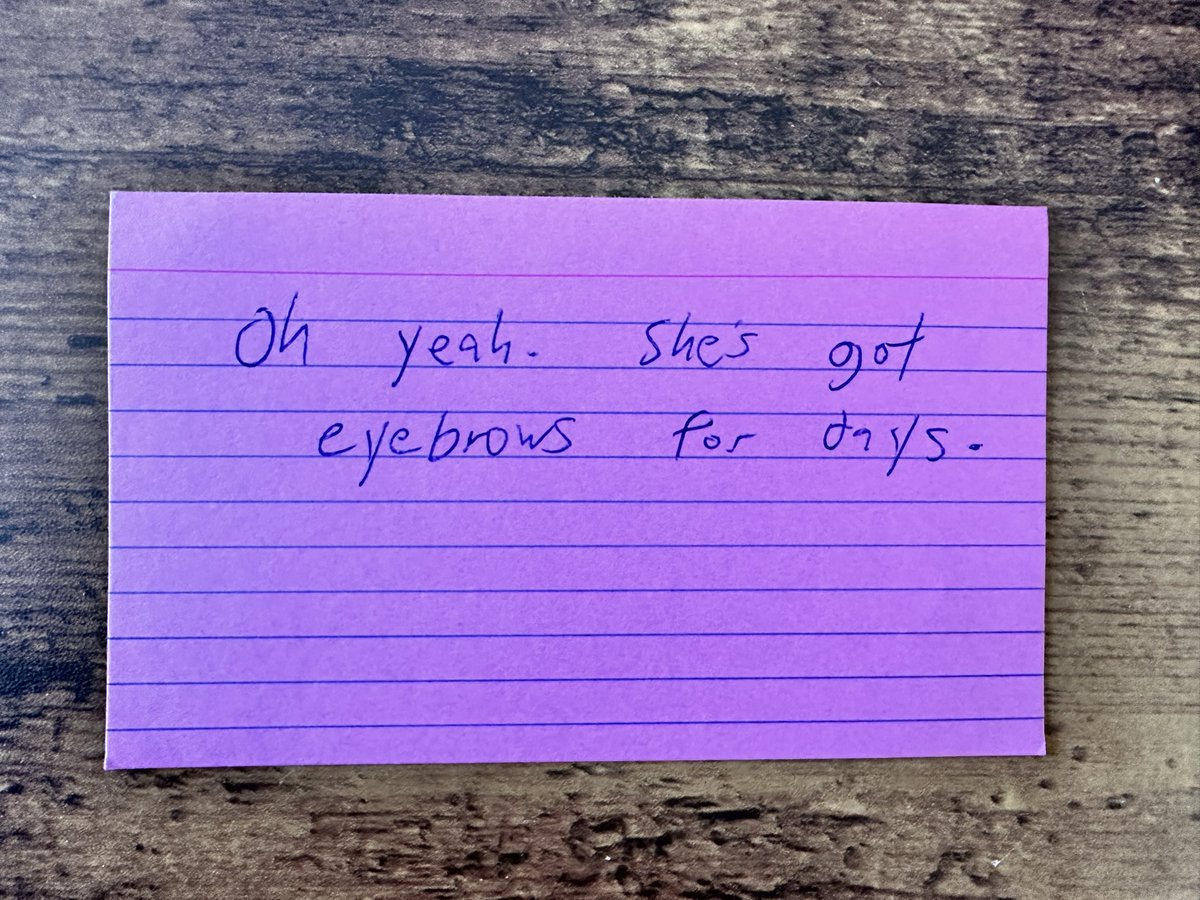 Oh yeah. She's got
eyebrows for days.